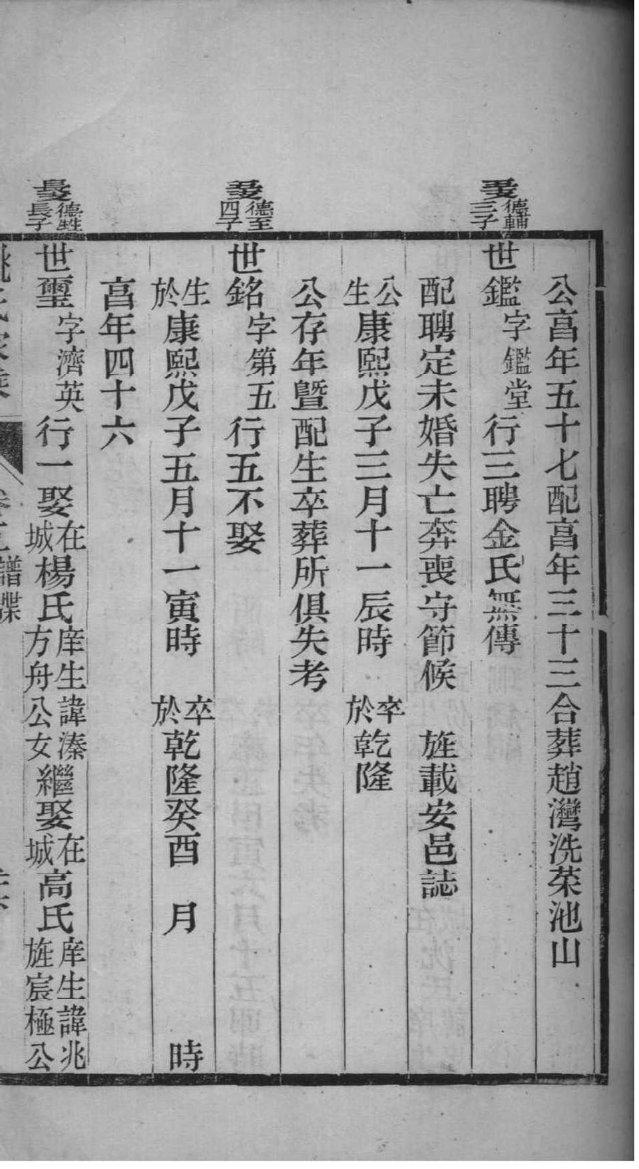 公亯年五十七配亯年三十三合葬趙灣洗菜池山
德輔三子
世鑑字鑑堂行三聘金氏無傳
配聘定未婚失亡奔喪守節候 旌載安邑誌
公生康熙戊子三月十一辰時 卒於乾隆
公存年曁配生卒葬所俱失考
德至四子
世銘字第五行五不娶
生於康熙戊子五月十一寅時 卒於乾隆癸酉 月 時
亯年四十六
德甡長子
世璽字濟英行一娶在城楊氏庠生諱溱方舟公女繼娶在城高氏庠生諱兆旌宸極公